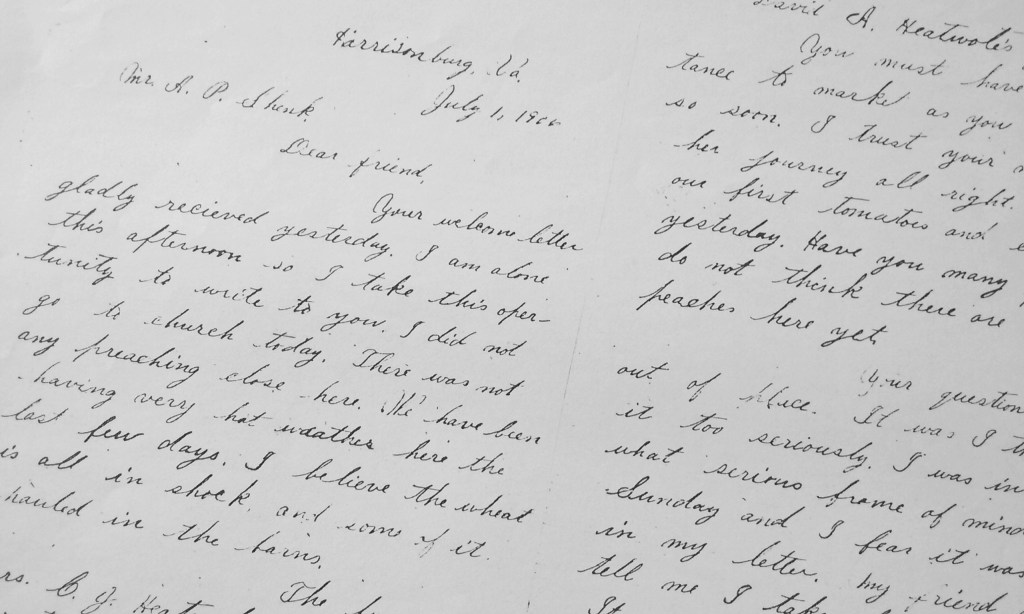 Harrisonburg, Va.
July 1, 190
Mr. A. P. Shenk
Dear friend,
Your welcome letter
gladly recieved yesterday. I am alone
this afternoon so I take this oper-
tunity to write to you. I did not
go to church today. There was not
any preaching close here. We have been
having very hot weather here the
last few days. I believe the wheat
is all in shock and some of it
hauled in the barns.
The
C. J.
David A. Heatwole's
You must have
tance to market as you
so soon. I trust your
her journey all right.
our first tomatoes and
yesterday. Have you many
do not think there are
peaches here yet.
Your question
out of place. It was I
it too seriously. I was in
what serious frame of mind
Sunday and I fear it was
in my letter. My friend
tell me I
It